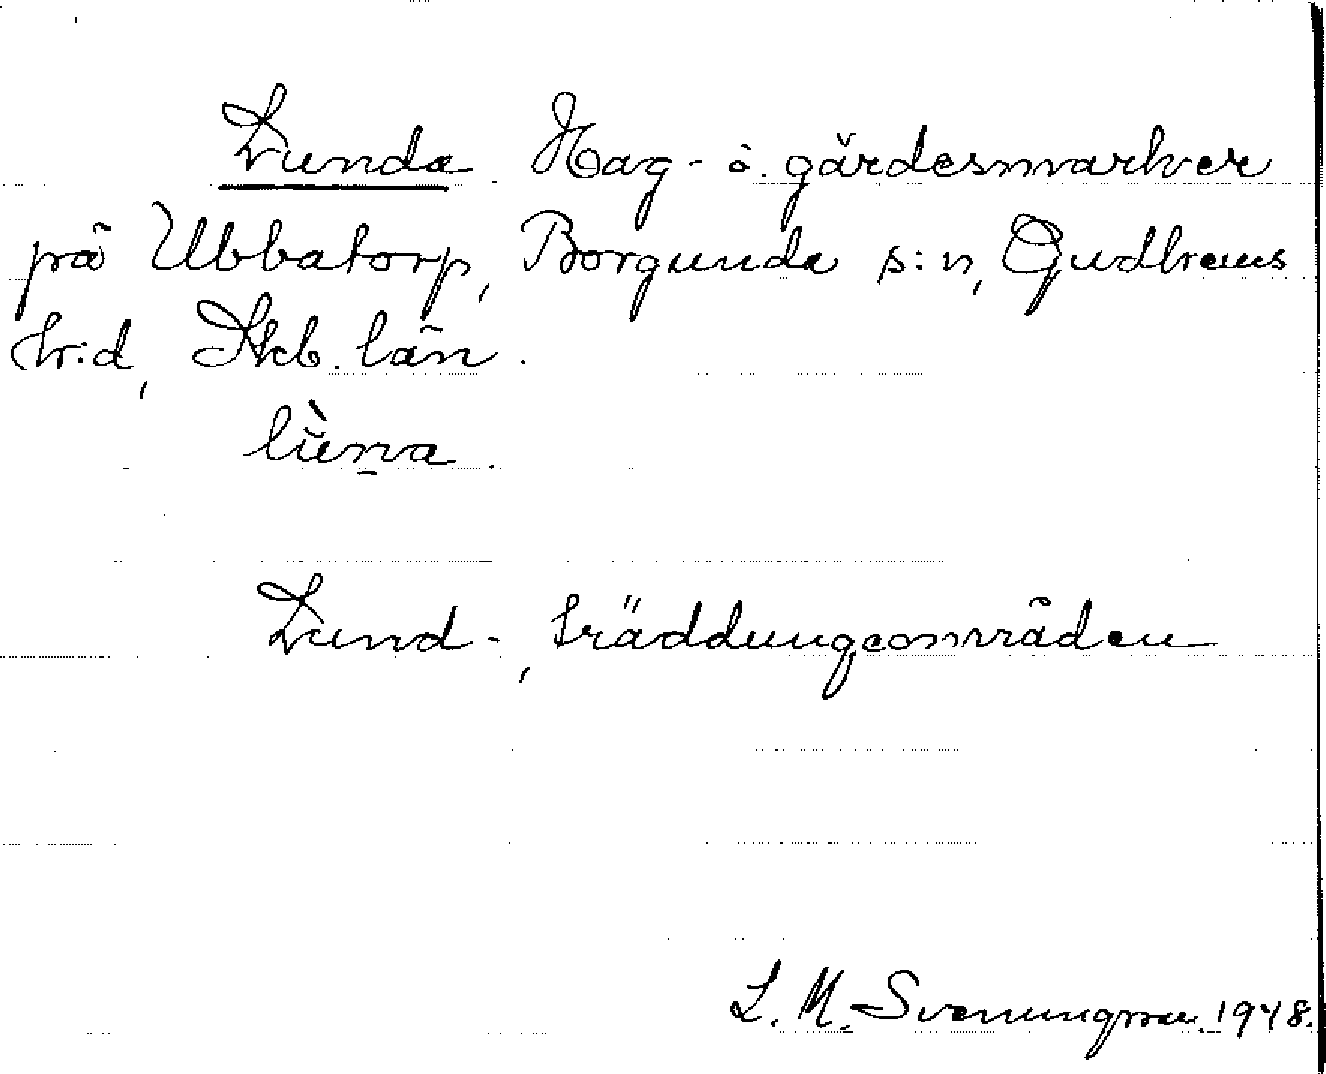 Lunda. Hag- o. gärdesmarker
på Ubbatorp, Borgunda s:n, Gudhems
hr:d, Skb. län.
lùn̠a.
Lund-, träddungeområden
L. M. Svenungsson. 1948.